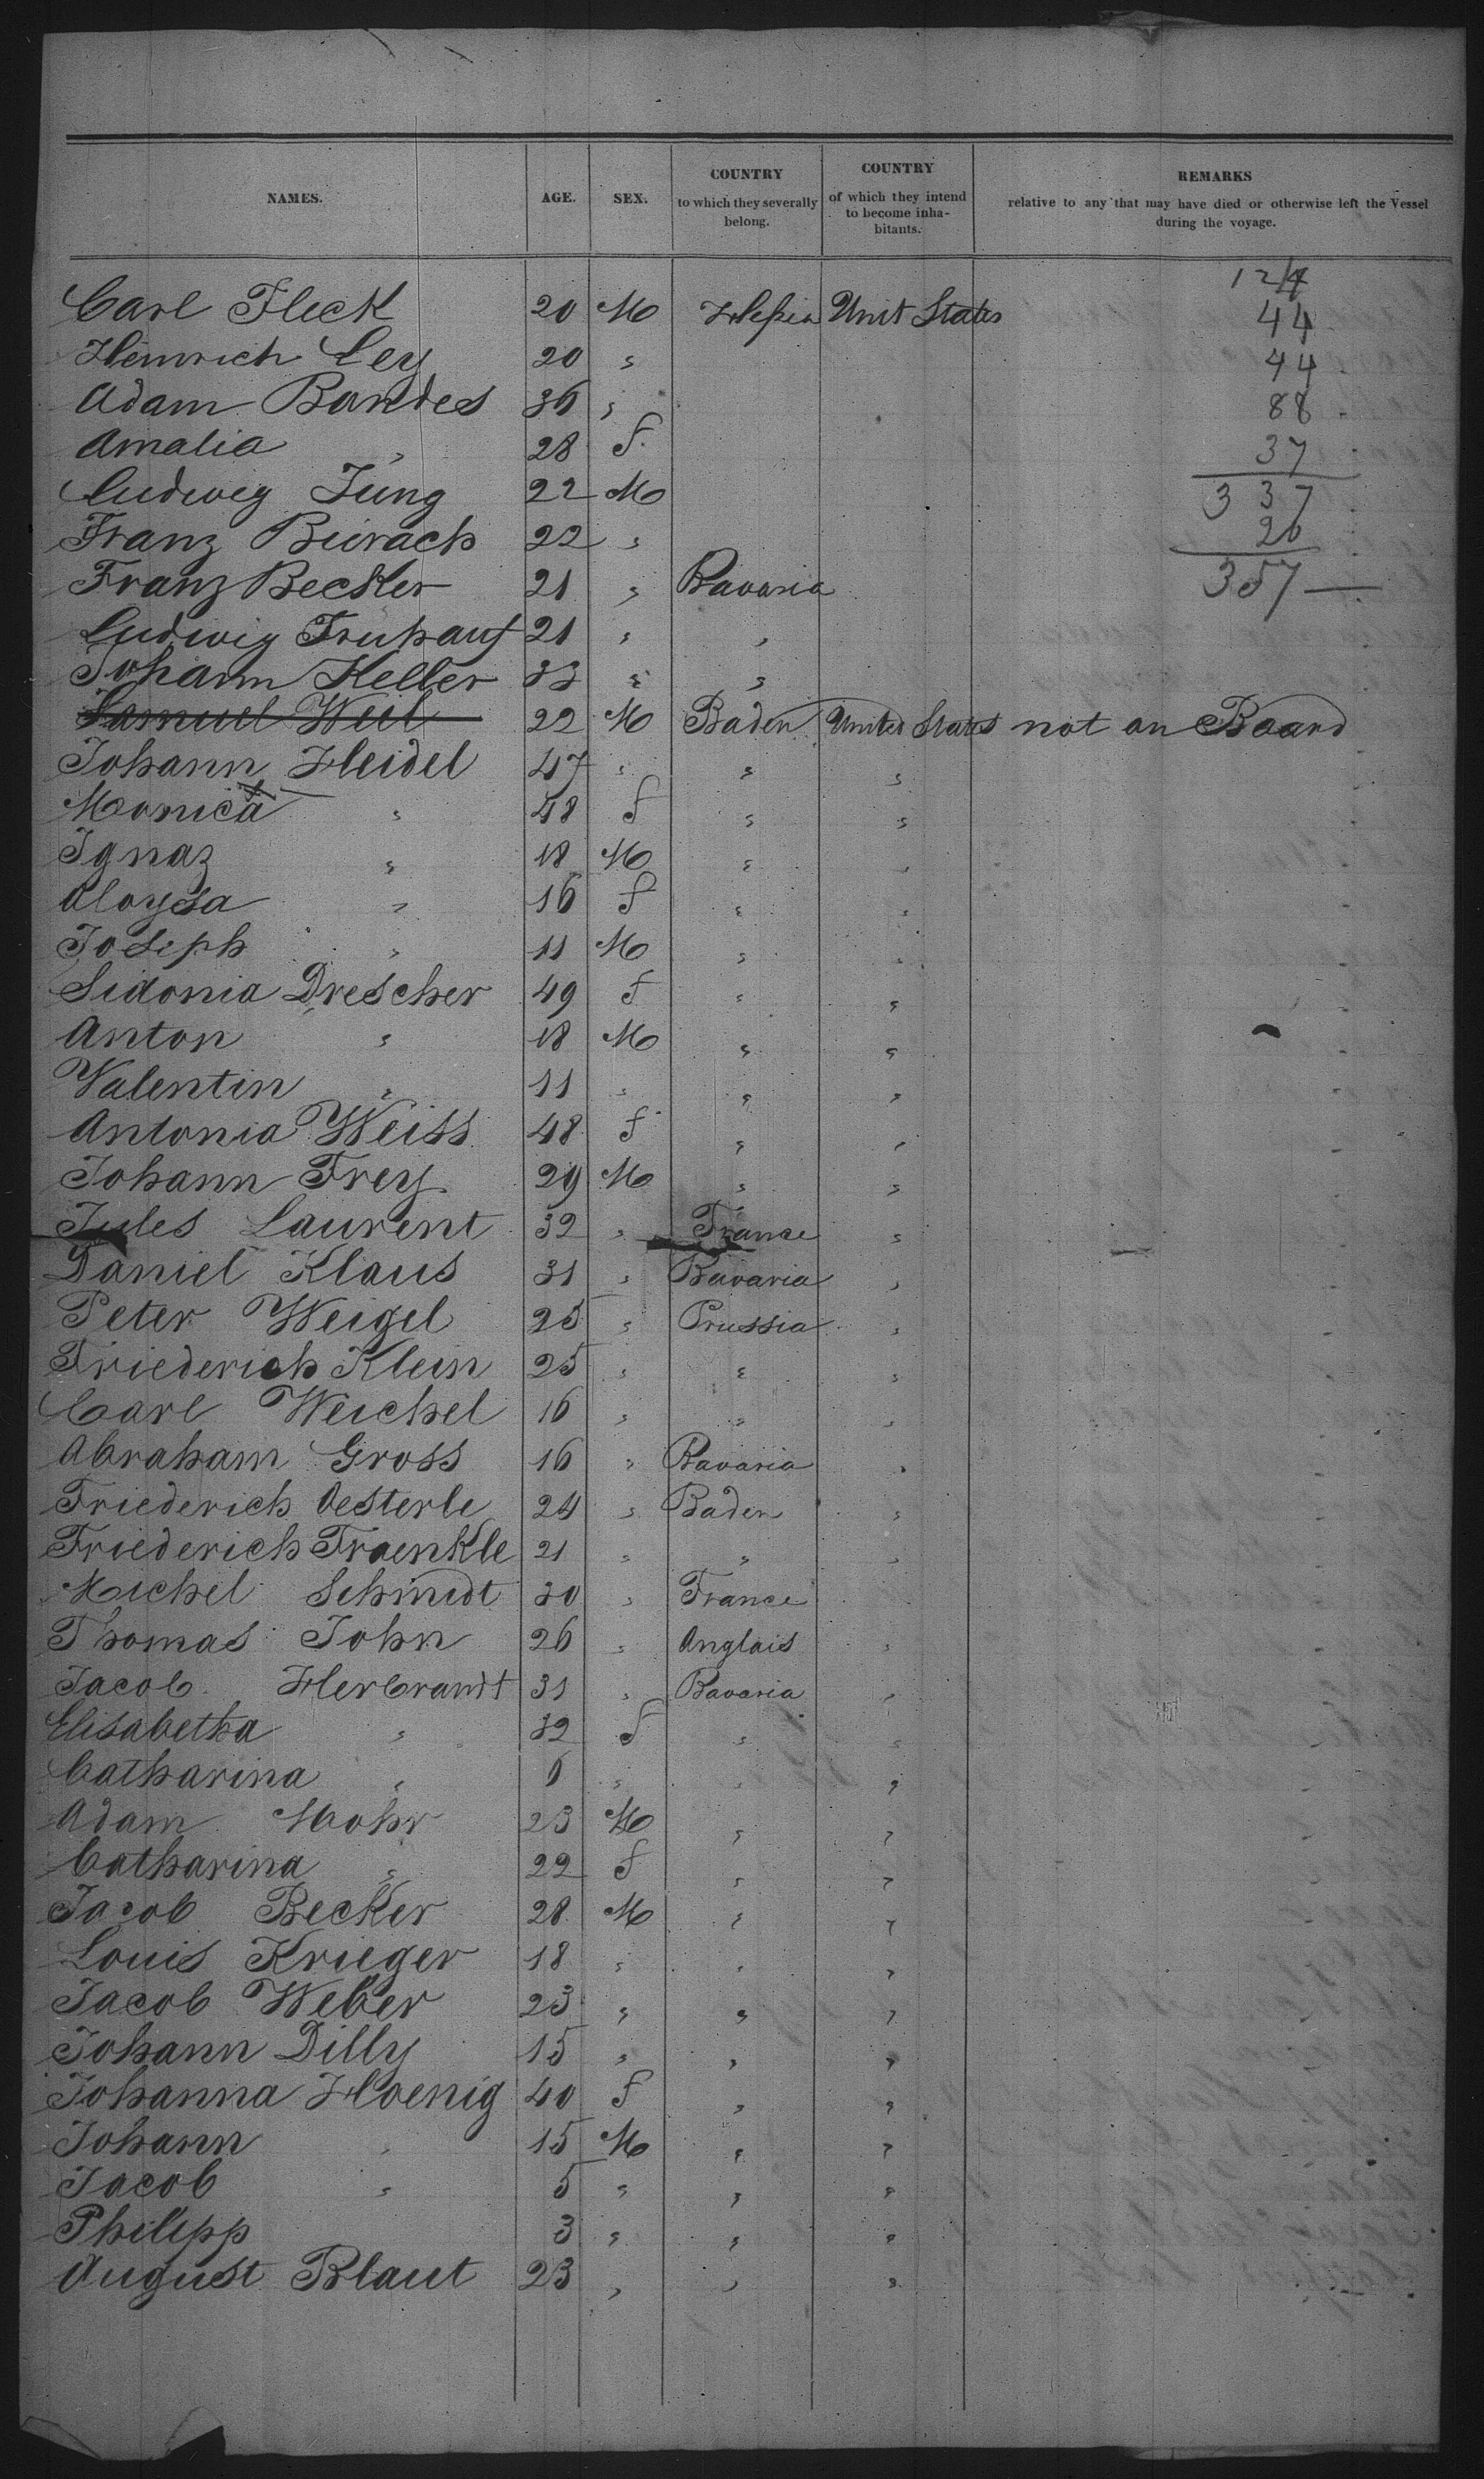 NAMES. AGE. SEX. COUNTRY to which they severally belong. COUNTRY of which they intend to become inhabitants. REMARKS relative to any that may have died or otherwise left the Vessel during the voyage.
Carl Fleck 20 M Hessia Unit States 124
44
Heinrich Ley 20 " 44
Adam Bandes 36 " 88
Amalia " 28 f 37
Ludwig Jung 22 M 337
Franz Burach 22 " 20
Franz Becker 21 " Bavaria 357
Ludwig Fruhauf 21 " "
Johann Keller 33 " "
Samuel Weil 22 M Baden United States not on Board
Johann Heidel 47 " " "
Monica " 48 f " "
Ignaz " 18 M " "
Aloysa " 16 f " "
Joseph " 11 M " "
Sidonia Drescher 49 f " "
Anton " 18 M " "
Valentin " 11 " " "
Antonia Weiss 48 f " "
Johann Frey 29 M " "
Jules Laurent 32 " France "
Daniel Klaus 31 " Bavaria "
Peter Weigel 25 " Prussia "
Friederich Klein 25 " " "
Carl Weichel 16 " " "
Abraham Gross 16 " Bavaria "
Friederich Oesterle 24 " Baden "
Friederich Fraenkle 21 " " "
Michel Schmidt 30 " France
Thomas John 26 " Anglais "
Jacob Herbrandt 31 " Bavaria "
Elisabetha " 32 f " "
Catharina " " " "
Adam Mohr 23 M " "
Catharina " 22 f " "
Jacob Becker 28 M " "
Louis Krieger 18 " " "
Jacob Weber 23 " " "
Johann Dilly 15 " " "
Johanna Hoenig 40 f " "
Johann " 15 M " "
Jacob " 5 " " "
Philipp 3 " " "
August Blaut 23 " " "